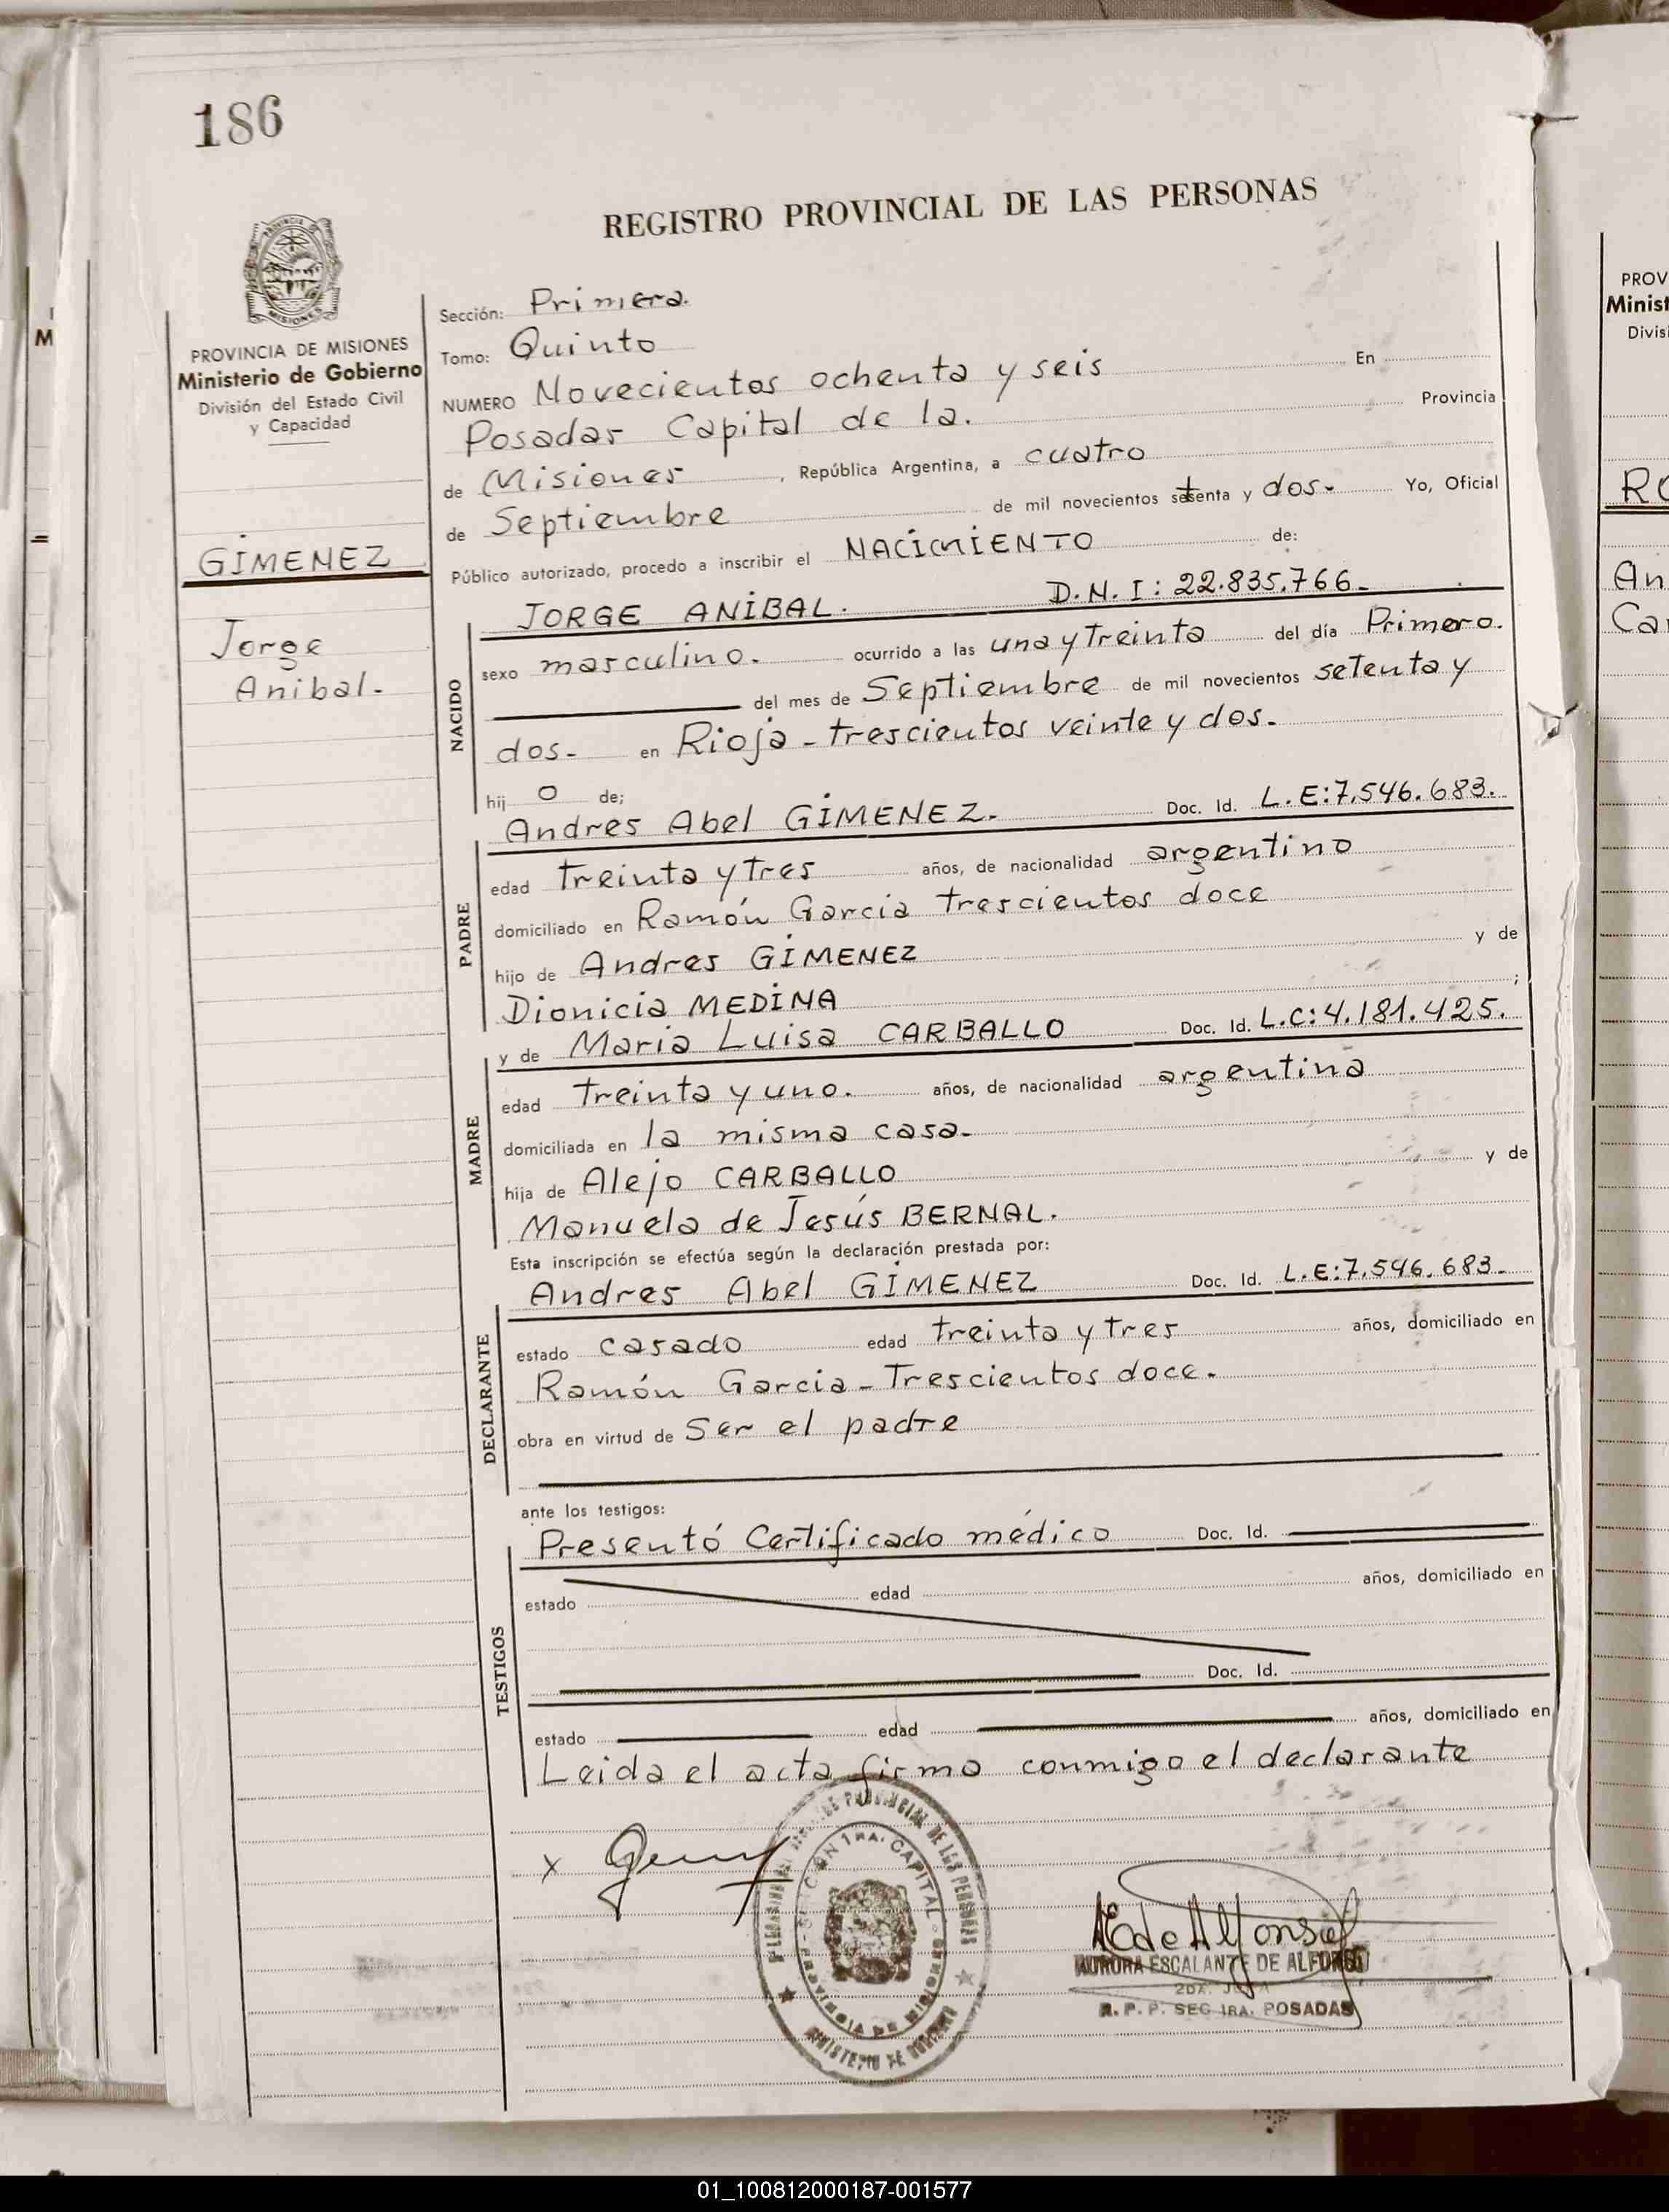 186
REGISTRO PROVINCIAL DE LAS PERSONAS
PROVINCIA DE MISIONES
Ministerio de Gobierno
División del Estado Civil
y Capacidad
GIMENEZ
Jorge
Anibal.-
Sección: Primera.
Tomo: Quinto
NUMERO Novecientos ochenta y seis En
Posadas Capital de la. Provincia
de Misiones, República Argentina, a cuatro
de Septiembre de mil novecientos setenta y dos.- Yo, Oficial
Público autorizado, procedo a inscribir el NACIMIENTO de:
JORGE ANIBAL. D.N.I: 22.835.766.-
NACIDO
sexo masculino. ocurrido a las una y Treinta del día Primero.
del mes de Septiembre de mil novecientos setenta y
dos- en Rioja - trescientos veinte y dos.-
hij o de;
PADRE
Andres Abel GIMENEZ.- Doc. Id. L.E:7.546.683.
edad Treinta y Tres años, de nacionalidad argentino
domiciliado en Ramón Garcia Trescientos doce
hijo de Andres GIMENEZ y de
Dionicia MEDINA ;
MADRE
y de Maria Luisa CARBALLO Doc. Id. L.C:4.181.425.
edad Treinta y uno. años, de nacionalidad argentina
domiciliada en la misma casa.-
hija de Alejo CARBALLO y de
Manuela de Jesús BERNAL.
Esta inscripción se efectúa según la declaración prestada por:
DECLARANTE
Andres Abel GIMENEZ Doc. Id. L.E:7.546.683.-
estado casado edad Treinta y Tres años, domiciliado en
Ramón Garcia - Trescientos doce.
obra en virtud de Ser el padre
ante los testigos:
TESTIGOS
Presentó Certificado médico Doc. Id.
estado edad años, domiciliado en
Doc. Id.
estado edad años, domiciliado en
Leida el acta firma conmigo el declarante
x
AE de Alfonso
AURORA ESCALANTE DE ALFONSO
2DA.
R. P. P. SEC 1RA. POSADAS
PROVINCIAL DE LAS PERSONAS
1RA. CAPITAL
PROVINCIA DE MISIONES
MINISTERIO DE GOBIERNO
M
PROV
Minist
Divisi
An
Ca
01_100812000187-001577